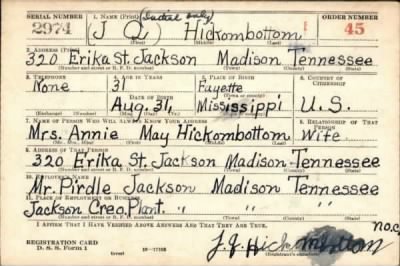 SERIAL NUMBER 1. NAME (Print) (Initial only) ORDER NUMBER
2974 (J Q) Hickombottom 45
(First) (Middle) (Last)
2. ADDRESS (Print)
320 Erika St. Jackson Madison Tennessee
(Number and street or R. F. D. number) (Town) (County) (State)
3. TELEPHONE 4. AGE IN YEARS 5. PLACE OF BIRTH 6. COUNTRY OF CITIZENSHIP
None 31 Fayette
DATE OF BIRTH
Aug. 31, Mississippi U.S.
7. NAME OF PERSON WHO WILL ALWAYS KNOW YOUR ADDRESS 8. RELATIONSHIP OF THAT PERSON
Mrs. Annie May Hickombottom Wife
9. ADDRESS OF THAT PERSON
320 Erika St. Jackson Madison Tennessee
(Number and street or R. F. D. number) (Town) (County) (State)
10. EMPLOYER'S NAME
Mr. Pirdle Jackson Madison Tennessee
11. PLACE OF EMPLOYMENT OR BUSINESS
Jackson Creo Plant. " " "
(Number and street or R. F. D. number) (Town) (County) (State)
I AFFIRM THAT I HAVE VERIFIED ABOVE ANSWERS AND THAT THEY ARE TRUE.
REGISTRATION CARD
D. S. S. Form 1 (over) J.Q. Hickombottom
(Registrant's signature)